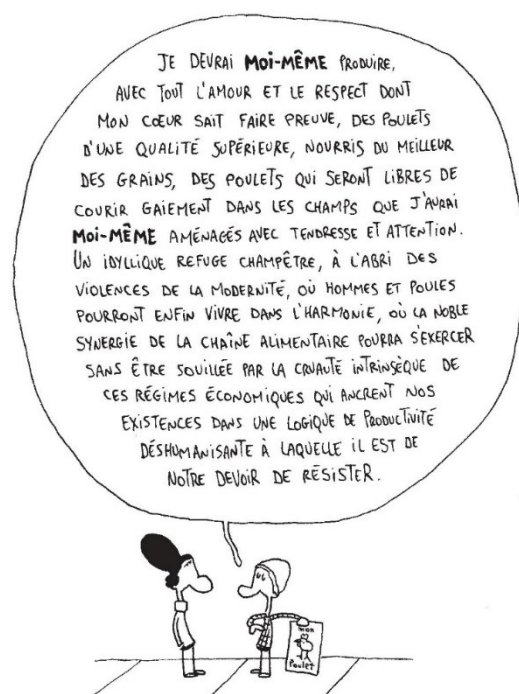 JE DEVRAI MOI-MÊME PRODUIRE,
AVEC TOUT L'AMOUR ET LE RESPECT DONT
MON CŒUR SAIT FAIRE PREUVE, DES POULETS
D'UNE QUALITÉ SUPÉRIEURE, NOURRIS DU MEILLEUR
DES GRAINS, DES POULETS QUI SERONT LIBRES DE
COURIR GAIEMENT DANS LES CHAMPS QUE J'AURAI
MOI-MÊME AMÉNAGÉS AVEC TENDRESSE ET ATTENTION.
UN IDYLLIQUE REFUGE CHAMPÊTRE, À L'ABRI DES
VIOLENCES DE LA MODERNITÉ, OÙ HOMMES ET POULES
POURRONT ENFIN VIVRE DANS L'HARMONIE, OÙ LA NOBLE
SYNERGIE DE LA CHAÎNE ALIMENTAIRE POURRA S'EXERCER
SANS ÊTRE SOUILLÉE PAR LA CRUAUTÉ INTRINSÈQUE DE
CES RÉGIMES ÉCONOMIQUES QUI ANCRENT NOS
EXISTENCES DANS UNE LOGIQUE DE PRODUCTIVITÉ
DÉSHUMANISANTE À LAQUELLE IL EST DE
NOTRE DEVOIR DE RÉSISTER.
mon
Poulet